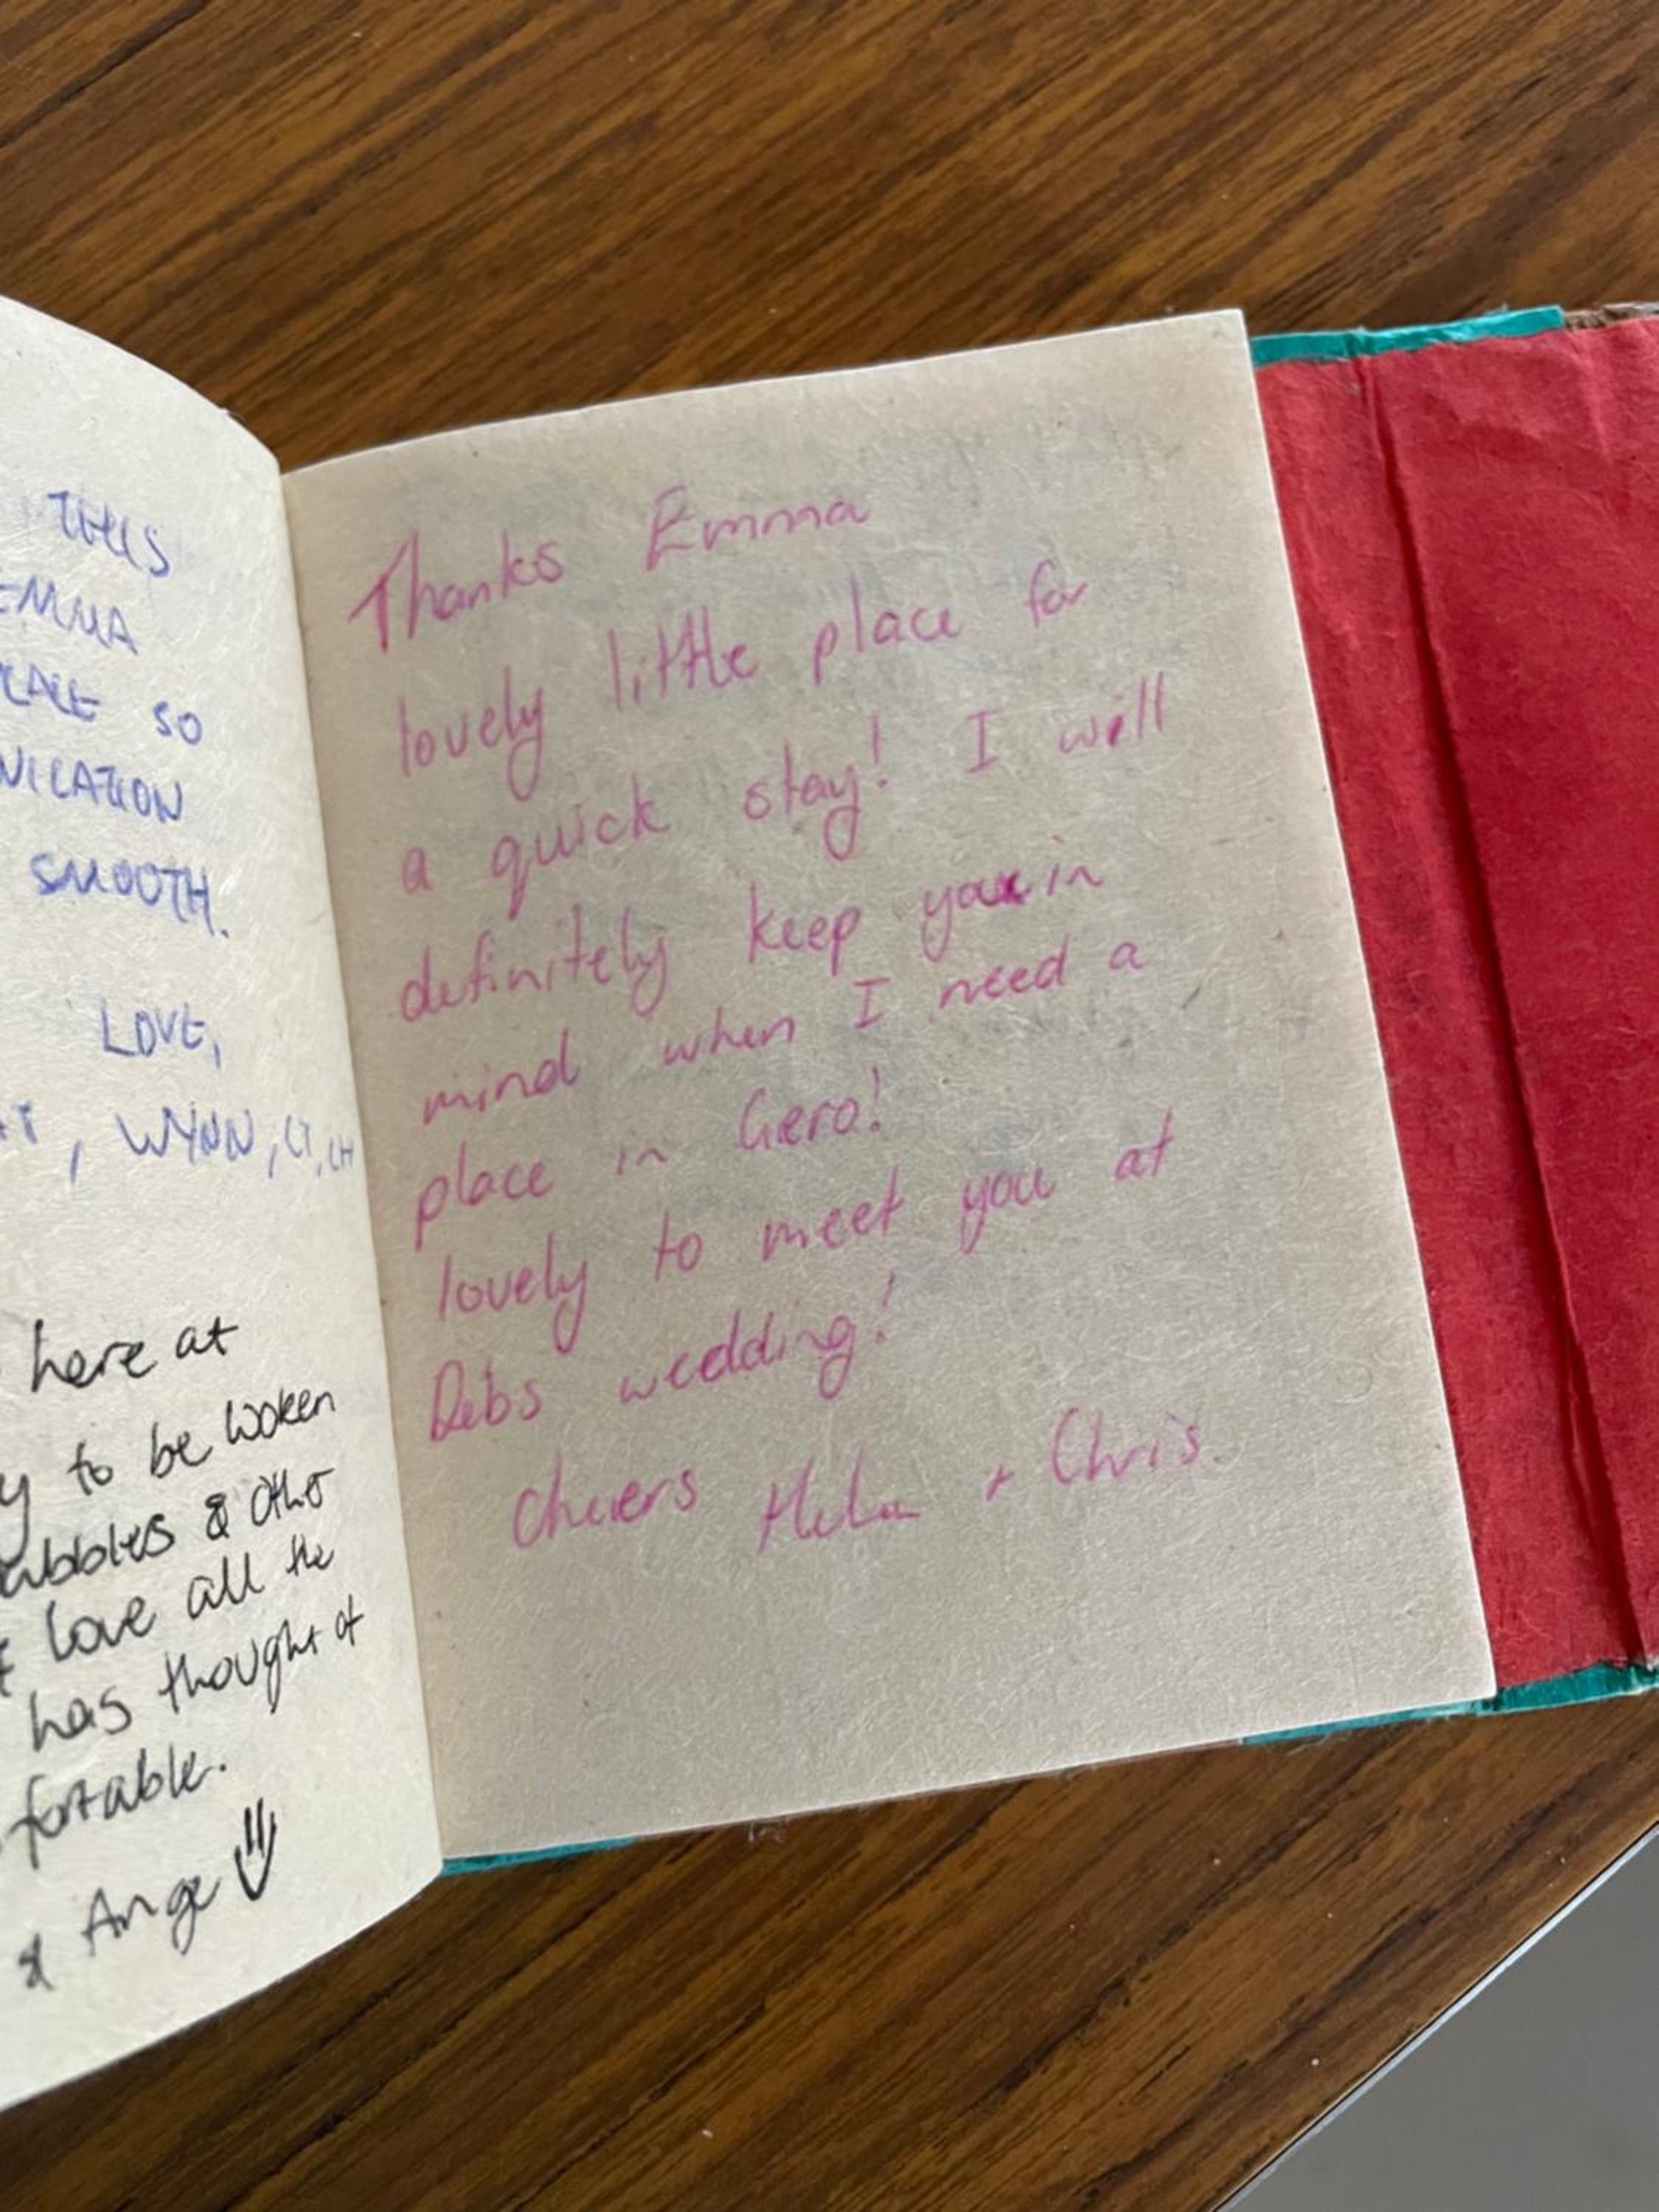 THIS
EMMA
PLACE SO
NICATION
SMOOTH.
LOVE,
, WYNN, CT, CH
here at
y to be woken
abbles & other
love all the
has thought of
fortable.
& Ange
Thanks Emma
lovely little place for
a quick stay! I will
definitely keep you in
mind when I need a
place in Gero!
lovely to meet you at
Debs wedding!
Cheers + Chris.